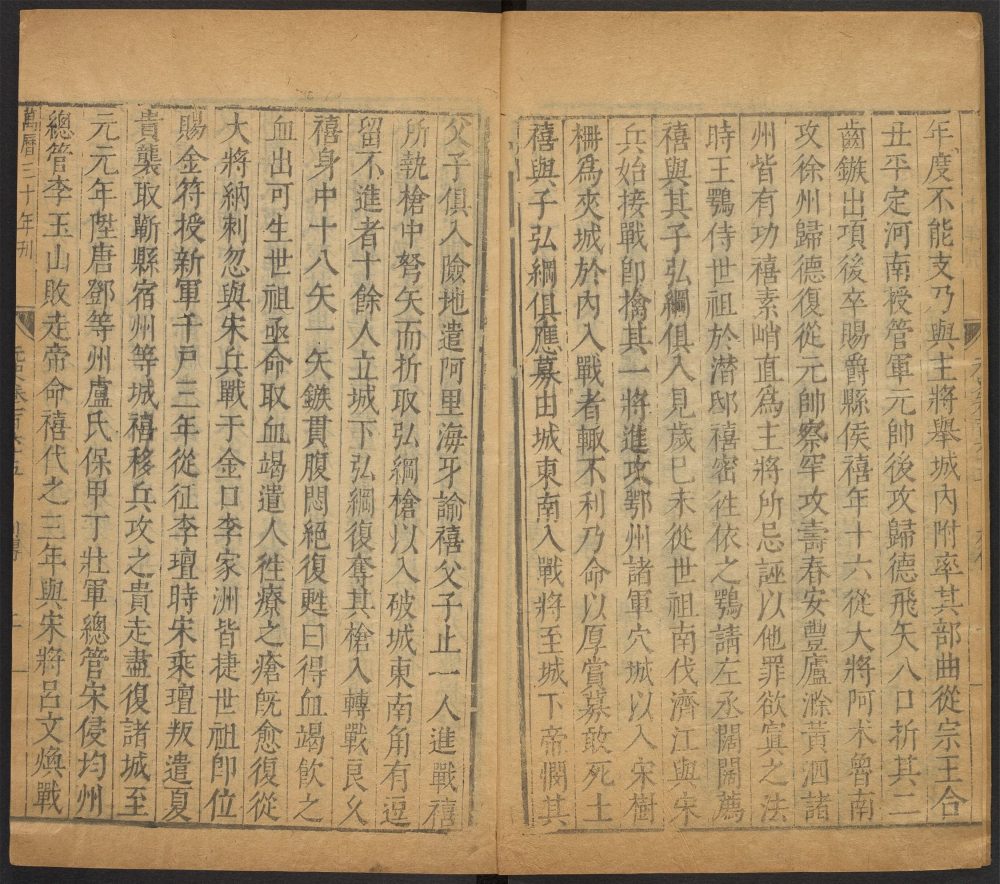 年度不能支乃與主將舉城內附率其部曲從宗王合
丑平定河南授管軍元帥後攻歸德飛矢入口折其二
齒鏃出項後卒賜爵縣侯禧年十六從大將阿朮魯南
攻徐州歸德復從元帥察罕攻壽春安豐廬滁黃泗諸
州皆有功禧素峭直爲主將所忌誣以他罪欲寘之法
時王鶚侍世祖於潛邸禧密徃依之鶚請左丞闊闊薦
禧與其子弘綱俱入見歲己未從世祖南伐濟江與宋
兵始接戰卽擒其一將進攻鄂州諸軍穴城以入宋樹
柵爲夾城於內入戰者輒不利乃命以厚賞募敢死士
禧與子弘綱俱應募由城東南入戰將至城下帝憫其
父子俱入險地遣阿里海牙諭禧父子止一人進戰禧
所執槍中弩矢而折取弘綱槍以入破城東南角有逗
留不進者十餘人立城下弘綱復奪其槍入轉戰良久
禧身中十八矢一矢鏃貫腹悶絕復甦曰得血竭飲之
血出可生世祖亟命取血竭遣人徃療之瘡旣愈復從
大將納剌忽與宋兵戰于金口李家洲皆捷世祖卽位
賜金符授新軍千戶三年從征李璮時宋乘璮叛遣夏
貴襲取蘄縣宿州等城禧移兵攻之貴走盡復諸城至
元元年陞唐鄧等州盧氏保甲丁壯軍總管宋侵均州
總管李玉山敗走帝命禧代之三年與宋將呂文煥戰
萬曆三十年刊